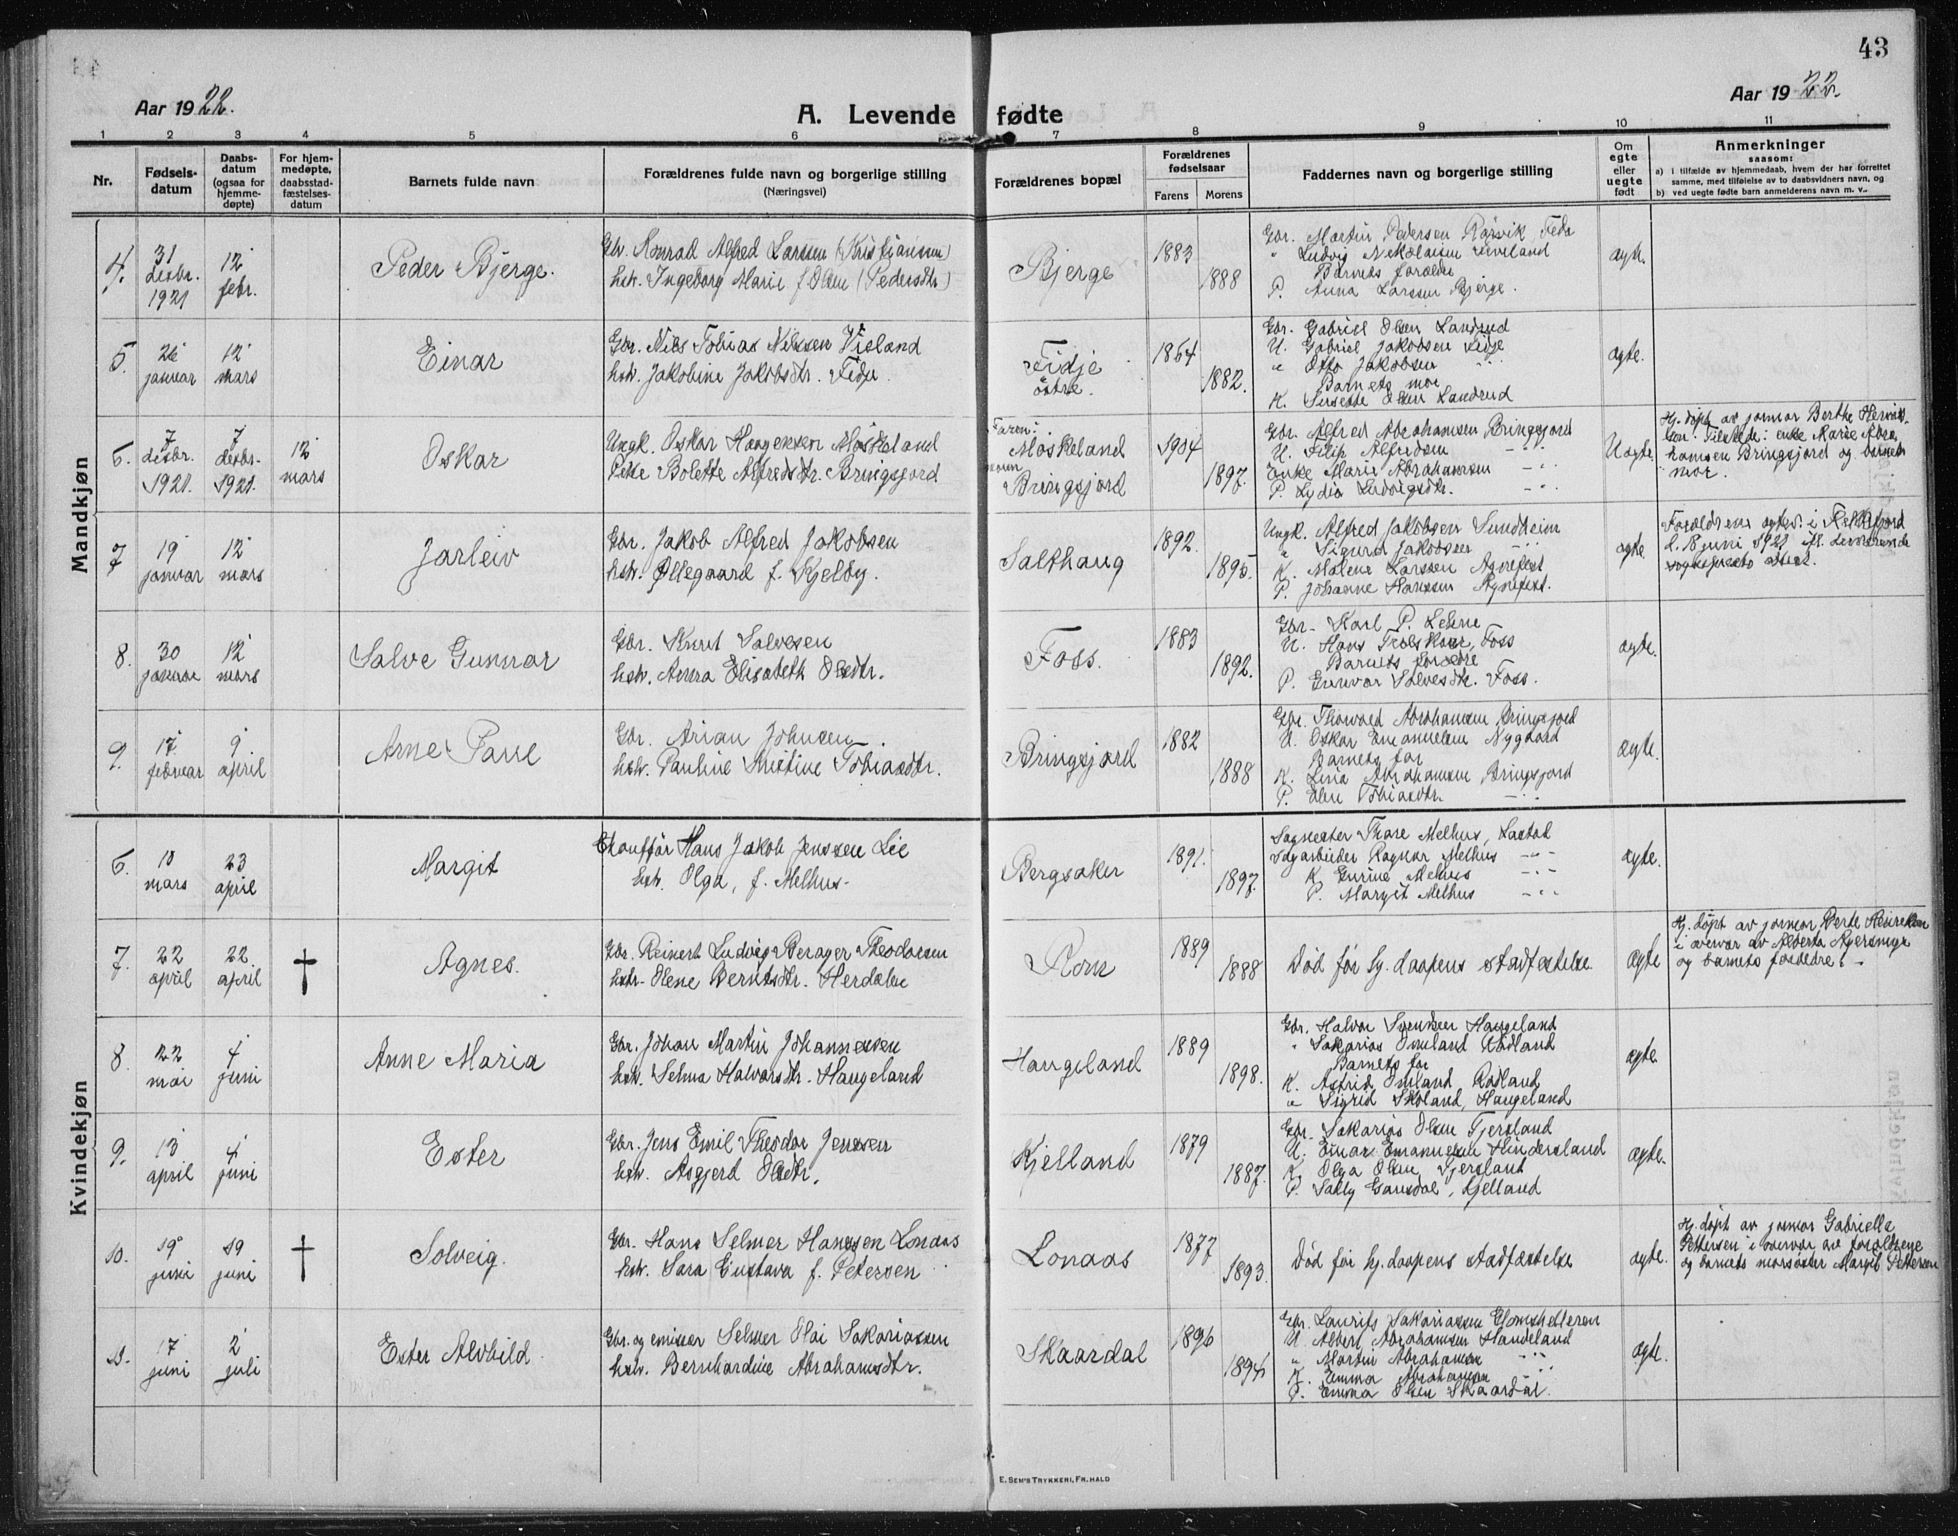 43
Aar 1922.
A. Levende fødte
Aar 1922.
1 2 3 4 5 6 7 8 9 10 11
Nr.
Fødsels-
datum
Daabs-
datum
(ogsaa for
hjemme-
døpte)
For hjem-
medøpte,
daabsstad-
fæstelses-
datum
Barnets fulde navn
Forældrenes fulde navn og borgerlige stilling
(Næringsvei)
Forældrenes bopæl
Forældrenes
fødselsaar
Farens Morens
Faddernes navn og borgerlige stilling
Om
egte
eller
uegte
født
Anmerkninger
saasom:
a) i tilfælde av hjemmedaab, hvem der har forrettet
samme, med tilføielse av to daabsvidners navn, og
b) ved uegte fødte barn anmelderens navn m. v.
Mandkjøn
4.
31
desbr.
1921
12
febr.
Peder Bjerge.
Gbr. Konrad Alfred Larssen (Kristjanssen)
hstr. Ingeborg Marie f. Olsen (Pedersdtr.)
Bjerge
1883
1888
Gbr. Martin Pedersen Rørvik Feda
" Ludvig Nikolaisen
Barnets forældre
P. Anna Larssen Bjerge.
ægte.
5.
26
januar
12
mars
Einar
Gbr. Nils Tobias Nilssen Vieland
hstr. Jakobine Jakobsdtr. Fidje.
Fidje
østre.
1864
1882.
Gbr. Gabriel Olsen Landrud
U. Gabriel Jakobsen Fidje
" Otto Jakobsen "
Barnets mor
K. Olsen Landrud
ægte.
6.
7
desbr.
1921.
7
desbr.
1921.
12
mars
Oskar
Ungk. Oskar Møskeland
Pike Bolette Alfredsdtr. Bringsjord
Faren:
Møskeland
Bringsjord
1904
1897.
Gbr. Alfred Abrahamsen Bringsjord
U. Filip Alfredsen - " -
Enke Marie Abrahamsen - " -
P. Lydia Ludvigsdtr. - " -
Uægte.
Hj. døpt av jormor Berthe
enke Marie Abra-
hamsen Bringsjord og barnets
mor.
7
19
januar
12
mars
Jarleiv
Gbr. Jakob Alfred Jakobsen
hstr. Øllegaard f. Kjelby.
Salthaug
1892.
1895.
Ungk. Alfred Jakobsen Sundheim
" Sigurd Jakobsen - " -
K. Malene Larssen Agnefest
P. Johanne Hanssen Agnefest.
ægte
Forældrene ægtev. i Flekkefjord
d. 18 juni 1921
8.
30
januar
12
mars
Salve Gunnar
Gbr. Knut Salvesen
hstr. Anna Elisabeth Olsdtr.
Foss.
1883
1892.
Gbr. Karl P. Lehne
U. Hans Foss
Barnets forældre
P. Gunvor Salvesdtr. Foss.
ægte.
9.
17
februar
9
april
Arne
Gbr. Arian Johnsen
hstr. Pauline Kristine Tobiasdtr.
Bringsjord
1882
1888
Gbr. Thorvald Abrahamsen Bringsjord
U. Oskar Emanuelsen Nygaard
Barnets far
K. Lina Abrahamsen Bringsjord
P. Tobiasdtr. - " -
ægte.
Kvindekjøn
6.
10
mars
23
april
Margit
Chauffør Hans Jakob Jenssen Lie
hstr. Olga, f. Melhus.
Bergsaker
1891.
1897.
Sagmester Thore Melhus, Lastad
Sagarbeider Ragnar Melhus - " -
K. Gurine Melhus - " -
P. Margit Melhus - " -
ægte.
7.
22
april
22
april
†
Agnes.
Gbr. Reinert Ludvig Berager Theodorsen
hstr. Olene Berntsdtr. Herdalen
Rom
1889
1888
Død før hj.daapens stadfestelse
ægte
Hj. døpt av jormor Berte Henriksen
i overvær av Alberta
og barnets forældre.
8
22
mai
4
juni
Anne Maria
Gbr. Johan Martin Johannessen
hstr. Selma Halvorsdtr. Haugeland
Haugeland
1889
1898.
Gbr. Halvor Svendsen Haugeland
" Sakarias Omland Rødland
Barnets far
K. Astrid Omland Rødland
" Sigrid Skoland, Haugeland
ægte
9.
13
april
4
juni
Ester
Gbr. Jens Emil Theodor Jenssen
hstr. Asgjerd Olsdtr.
Kjelland
1879
1887.
Gbr. Sakarias Olsen Tjersland
U. Einar Emanuelsen Hindersland
K. Olga Olsen Tjersland
P. Sally Kjelland
ægte.
10.
19
juni
19
juni
†
Solveig.
Gbr. Hans Selmer Hanssen Lonaas
hstr. Sara Gustava f. Petersen
Lonaas
1877
1893.
Død før hj.daapens stadfæstelse
ægte.
Hj. døpt av jormor Gabriella
Pettersen i overvær av forældrene
og barnets morsøster Margit Pettersen
11.
17
juni
2
juli
Ester Alvhild
Gbr. og emissær Selmer Olai Sakariassen
hstr. Bernhardine Abrahamsdtr.
Skaardal
1896
1894
Gbr. Laurits Sakariassen
U. Albert Abrahamsen Haugeland
" Martin Abrahamsen - " -
K. Emma Abrahamsen - " -
P. Emma Olsen Skaardal.
ægte.
E. SEM'S TRYKKERI, FR.HALD